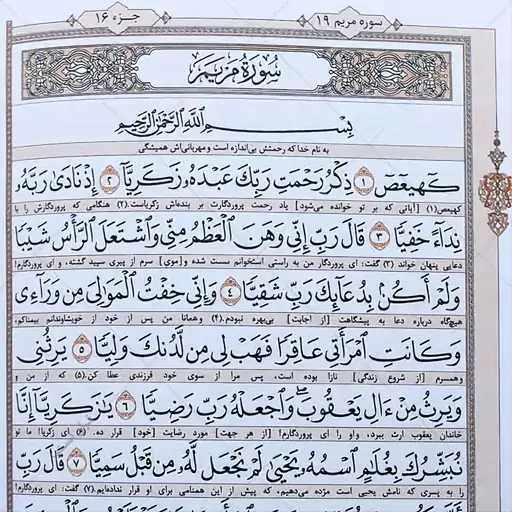 سوره مریم ۱۹
جزء ۱۶
سُورَةُ مَرْيَمَ
بِسْمِ اللَّهِ الرَّحْمَٰنِ الرَّحِيمِ
به نام خدا که رحمتش بی‌اندازه است و مهربانی‌اش همیشگی
كهيعص ۱ ذِكْرُ رَحْمَتِ رَبِّكَ عَبْدَهُ زَكَرِيَّا ۲ إِذْ نَادَىٰ رَبَّهُ
کهیعص(۱) [آیاتی که بر تو خوانده می‌شود] یاد رحمت پروردگارت بر بنده‌اش زکریاست.(۲) هنگامی که پروردگارش را با
نِدَاءً خَفِيًّا ۳ قَالَ رَبِّ إِنِّي وَهَنَ الْعَظْمُ مِنِّي وَاشْتَعَلَ الرَّأْسُ شَيْبًا
دعایی پنهان خواند (۳) گفت: ای پروردگار من به راستی استخوانم سست شده و [موی] سرم از پیری سپید گشته، و ای پروردگارم!
وَلَمْ أَكُنْ بِدُعَائِكَ رَبِّ شَقِيًّا ۴ وَإِنِّي خِفْتُ الْمَوَالِيَ مِنْ وَرَائِي
هیچ‌گاه درباره دعا به پیشگاهت [از اجابت] بی‌بهره نبودم.(۴) وهمانا من پس از خود از خویشاوندانم بیمناکم،
وَكَانَتِ امْرَأَتِي عَاقِرًا فَهَبْ لِي مِنْ لَدُنْكَ وَلِيًّا ۵ يَرِثُنِي
وهمسرم [از شروع زندگی] نازا بوده است، پس مرا از سوی خود فرزندی عطا کن.(۵) که از من و
وَيَرِثُ مِنْ آلِ يَعْقُوبَ ۖ وَاجْعَلْهُ رَبِّ رَضِيًّا ۶ يَا زَكَرِيَّا إِنَّا
خاندان یعقوب ارث ببرد، واو را ای پروردگارم! [از هر جهت] مورد رضایت [خود] قرار ده. (۶) ای زکریا! ما تو
نُبَشِّرُكَ بِغُلَامٍ اسْمُهُ يَحْيَىٰ لَمْ نَجْعَلْ لَهُ مِنْ قَبْلُ سَمِيًّا ۷ قَالَ رَبِّ
را به پسری که نامش یحیی است مژده می‌دهیم، که پیش از این همنامی برای او قرار نداده‌ایم.(۷) گفت: ای پروردگارم!